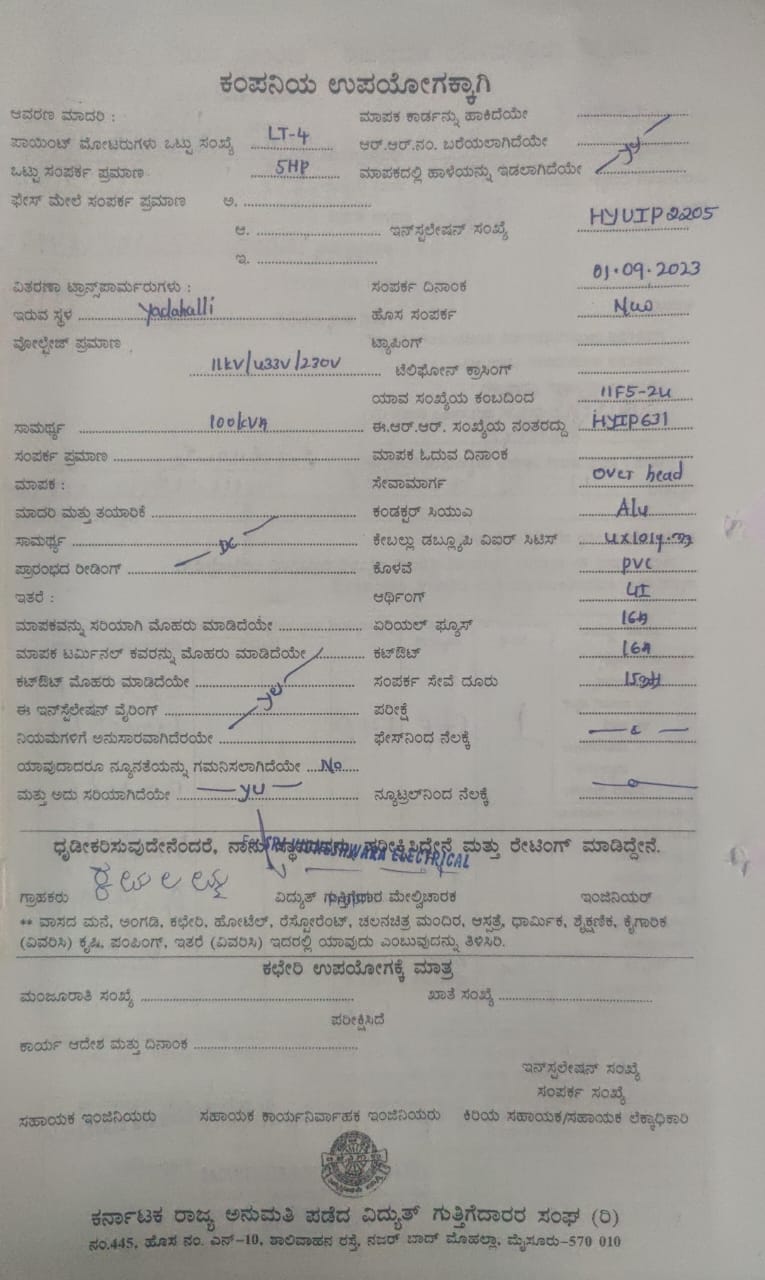 ಕಂಪನಿಯ ಉಪಯೋಗಕ್ಕಾಗಿ
ಆವರಣ ಮಾದರಿ : ಮಾಪಕ ಕಾರ್ಡನ್ನು ಹಾಕಿದೆಯೇ
ಪಾಯಿಂಟ್ ಮೋಟರುಗಳು ಒಟ್ಟು ಸಂಖ್ಯೆ LT-4 ಆರ್.ಆರ್.ನಂ. ಬರೆಯಲಾಗಿದೆಯೇ
ಒಟ್ಟು ಸಂಪರ್ಕ ಪ್ರಮಾಣ 5HP ಮಾಪಕದಲ್ಲಿ ಹಾಳೆಯನ್ನು ಇಡಲಾಗಿದೆಯೇ
ಫೇಸ್ ಮೇಲೆ ಸಂಪರ್ಕ ಪ್ರಮಾಣ ಅ.
ಆ. ಇನ್‌ಸ್ಟಲೇಷನ್ ಸಂಖ್ಯೆ HYUIP2205
ಇ.
ವಿತರಣಾ ಟ್ರಾನ್ಸ್‌ಪಾರ್ಮರುಗಳು : ಸಂಪರ್ಕ ದಿನಾಂಕ 01.09.2023
ಇರುವ ಸ್ಥಳ Yadahalli ಹೊಸ ಸಂಪರ್ಕ
ವೋಲ್ಟೇಜ್ ಪ್ರಮಾಣ ಟ್ಯಾಪಿಂಗ್
11kV/433V/230V ಟೆಲಿಫೋನ್ ಕ್ರಾಸಿಂಗ್
ಯಾವ ಸಂಖ್ಯೆಯ ಕಂಬದಿಂದ 11F5-24
ಸಾಮರ್ಥ್ಯ 100kVA ಈ.ಆರ್.ಆರ್. ಸಂಖ್ಯೆಯ ನಂತರದ್ದು HYIP631
ಸಂಪರ್ಕ ಪ್ರಮಾಣ ಮಾಪಕ ಓದುವ ದಿನಾಂಕ
ಮಾಪಕ : ಸೇವಾಮಾರ್ಗ Over head
ಮಾದರಿ ಮತ್ತು ತಯಾರಿಕೆ ಕಂಡಕ್ಟರ್ ಸಿಯುಎ Alu
ಸಾಮರ್ಥ್ಯ DC ಕೇಬಲ್ಲು ಡಬ್ಲ್ಯೂಪಿ ವಿಐರ್ ಸಿಟಿಸ್
ಪ್ರಾರಂಭದ ರೀಡಿಂಗ್ ಕೊಳವೆ PVC
ಇತರೆ : ಆರ್ಥಿಂಗ್
ಮಾಪಕವನ್ನು ಸರಿಯಾಗಿ ಮೊಹರು ಮಾಡಿದೆಯೇ ಏರಿಯಲ್ ಫ್ಯೂಸ್ 16A
ಮಾಪಕ ಟರ್ಮಿನಲ್ ಕವರನ್ನು ಮೊಹರು ಮಾಡಿದೆಯೇ ಕಟ್‌ಔಟ್ 16A
ಕಟ್‌ಔಟ್ ಮೊಹರು ಮಾಡಿದೆಯೇ ಸಂಪರ್ಕ ಸೇವೆ ದೂರು
ಈ ಇನ್‌ಸ್ಟೆಲೇಷನ್ ವೈರಿಂಗ್ ಪರೀಕ್ಷೆ
ನಿಯಮಗಳಿಗೆ ಅನುಸಾರವಾಗಿದೆರಯೇ ಫೇಸ್‌ನಿಂದ ನೆಲಕ್ಕೆ
ಯಾವುದಾದರೂ ನ್ಯೂನತೆಯನ್ನು ಗಮನಿಸಲಾಗಿದೆಯೇ No
ಮತ್ತು ಅದು ಸರಿಯಾಗಿದೆಯೇ ನ್ಯೂಟ್ರಲ್‌ನಿಂದ ನೆಲಕ್ಕೆ
ಧೃಡೀಕರಿಸುವುದೇನೆಂದರೆ, ನಾನು ಪರೀಕ್ಷಿಸಿದ್ದೇನೆ ಮತ್ತು ರೇಟಿಂಗ್ ಮಾಡಿದ್ದೇನೆ.
ELECTRICAL
ಗ್ರಾಹಕರು ವಿದ್ಯುತ್ ಗುತ್ತಿಗೆದಾರ ಮೇಲ್ವಿಚಾರಕ ಇಂಜಿನಿಯರ್
** ವಾಸದ ಮನೆ, ಅಂಗಡಿ, ಕಛೇರಿ, ಹೋಟೆಲ್, ರೆಸ್ಟೋರೆಂಟ್, ಚಲನಚಿತ್ರ ಮಂದಿರ, ಆಸ್ಪತ್ರೆ, ಧಾರ್ಮಿಕ, ಶೈಕ್ಷಣಿಕ, ಕೈಗಾರಿಕ
(ವಿವರಿಸಿ) ಕೃಷಿ, ಪಂಪಿಂಗ್, ಇತರೆ (ವಿವರಿಸಿ) ಇದರಲ್ಲಿ ಯಾವುದು ಎಂಬುವುದನ್ನು ತಿಳಿಸಿರಿ.
ಕಛೇರಿ ಉಪಯೋಗಕ್ಕೆ ಮಾತ್ರ
ಮಂಜೂರಾತಿ ಸಂಖ್ಯೆ ಖಾತೆ ಸಂಖ್ಯೆ
ಪರೀಕ್ಷಿಸಿದೆ
ಕಾರ್ಯ ಆದೇಶ ಮತ್ತು ದಿನಾಂಕ
ಇನ್‌ಸ್ಟಲೇಷನ್ ಸಂಖ್ಯೆ
ಸಂಪರ್ಕ ಸಂಖ್ಯೆ
ಸಹಾಯಕ ಇಂಜಿನಿಯರು ಸಹಾಯಕ ಕಾರ್ಯನಿರ್ವಾಹಕ ಇಂಜಿನಿಯರು ಕಿರಿಯ ಸಹಾಯಕ/ಸಹಾಯಕ ಲೆಕ್ಕಾಧಿಕಾರಿ
ಕರ್ನಾಟಕ ರಾಜ್ಯ ಅನುಮತಿ ಪಡೆದ ವಿದ್ಯುತ್ ಗುತ್ತಿಗೆದಾರರ ಸಂಘ (ರಿ)
ನಂ.445, ಹೊಸ ನಂ. ಎನ್-10, ಶಾಲಿವಾಹನ ರಸ್ತೆ, ನಜರ್ ಬಾದ್ ಮೊಹಲ್ಲಾ, ಮೈಸೂರು-570 010